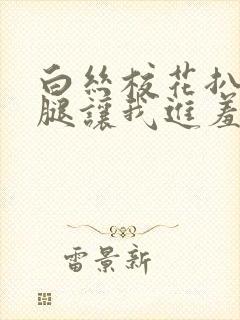 白丝校花扒
腿讓我進羞
雷景新